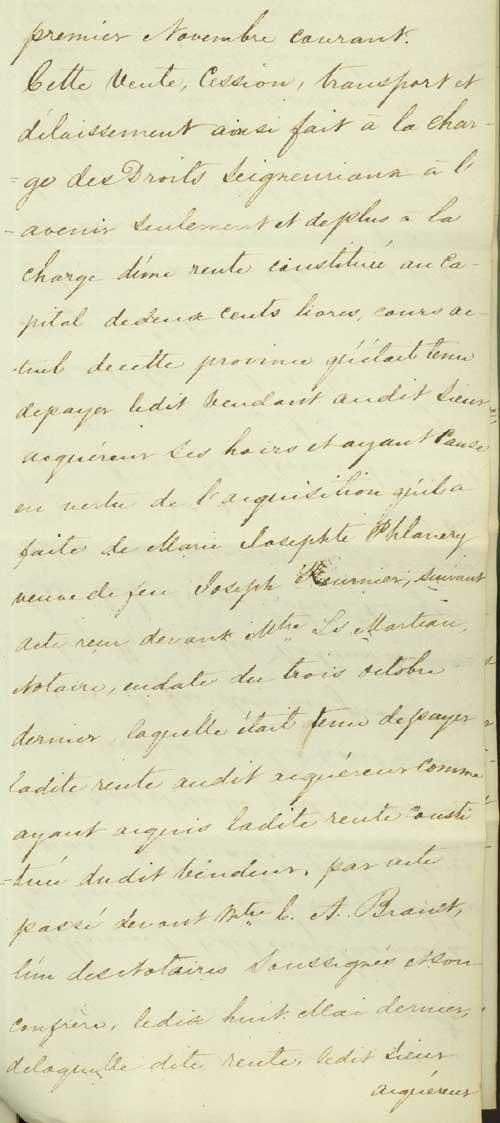 premier Novembre courant.
Cette Vente, Cession, transport et
délaissement ainsi fait à la char-
-ge des Droits Seigneuriaux à l'
-avenir seulement et de plus a la
charge d'une rente constituée au Ca-
pital de deux cents livres, cours ac-
-tuel de cette province qu'était tenu
de payer ledit Vendant audit Sieur
acquéreur ses hoirs et ayant Cause
en vertu de l'acquisition qu'il a
faite de Marie Josephte Phlavery
veuve de feu Joseph Fournier, suivant
acte reçu devant Mtre Ls Marteau,
Notaire, en date du trois octobre
dernier, laquelle était tenu de payer
ladite rente audit acquéreur comme
ayant acquis ladite rente consti
-tuée dudit Vendeur, par acte
passé devant Mtre C. A. Brault,
l'un des Notaires Soussignés et son
confrère, le dix huit Mai dernier,
de laquelle dite rente, ledit Sieur
acquéreur